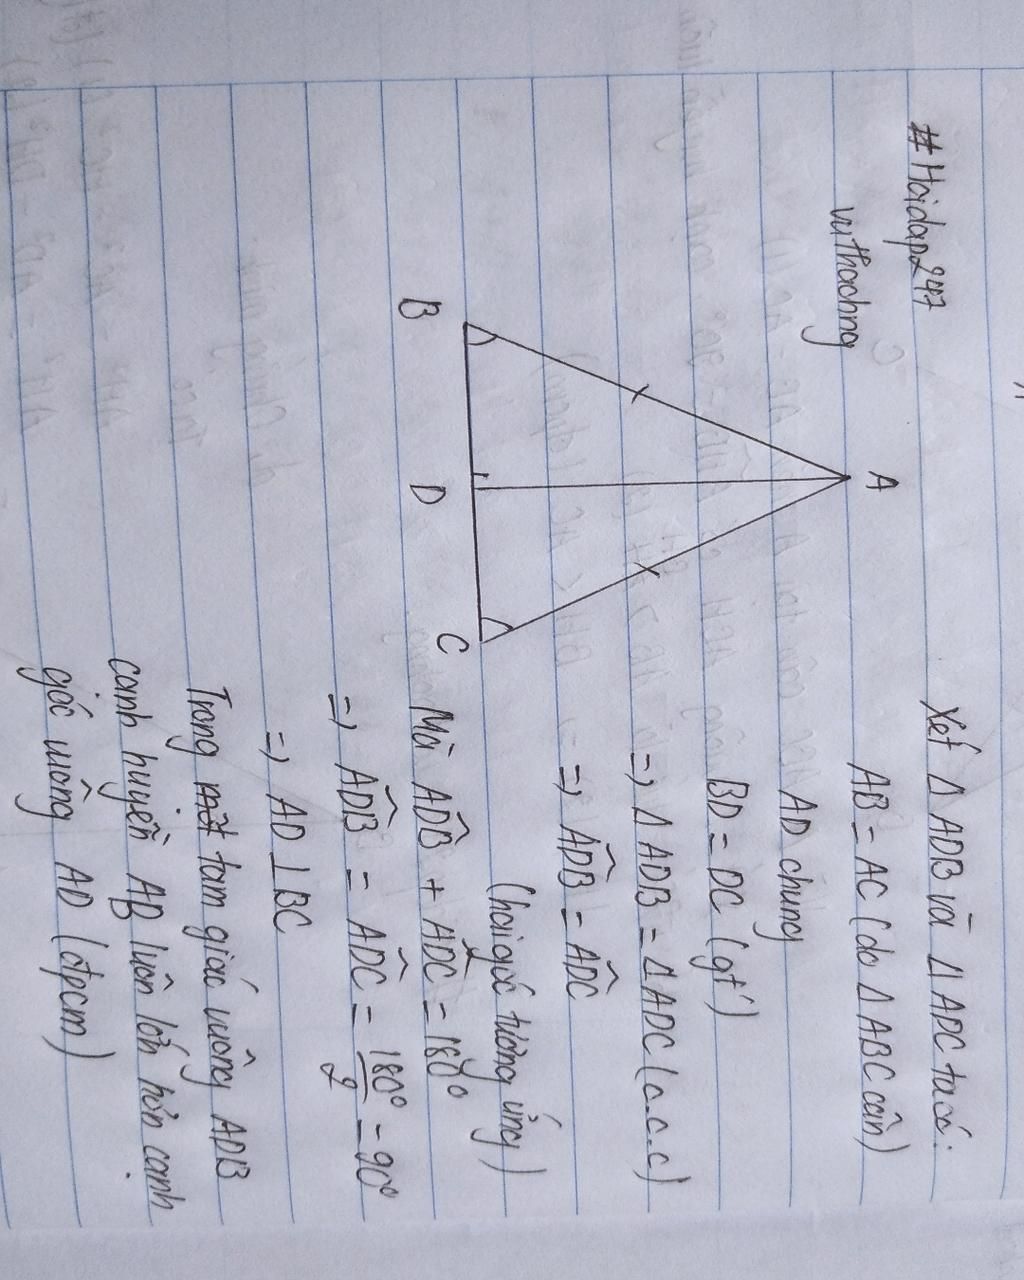 #Hoidap247
vuthachng
A
B
D
C
Xét Δ ADB và Δ ADC ta có:
AB = AC (do Δ ABC cân)
AD chung
BD = DC (gt)
=> Δ ADB = Δ ADC (c.c.c)
=> ADB̂ = ADĈ
(hai góc tương ứng)
Mà ADB̂ + ADĈ = 180°
=> ADB̂ = ADĈ = 180°/2 = 90°
=> AD ⊥ BC
Trong một tam giác vuông ADB
cạnh huyền AB luôn lớn hơn cạnh
góc vuông AD (đpcm)